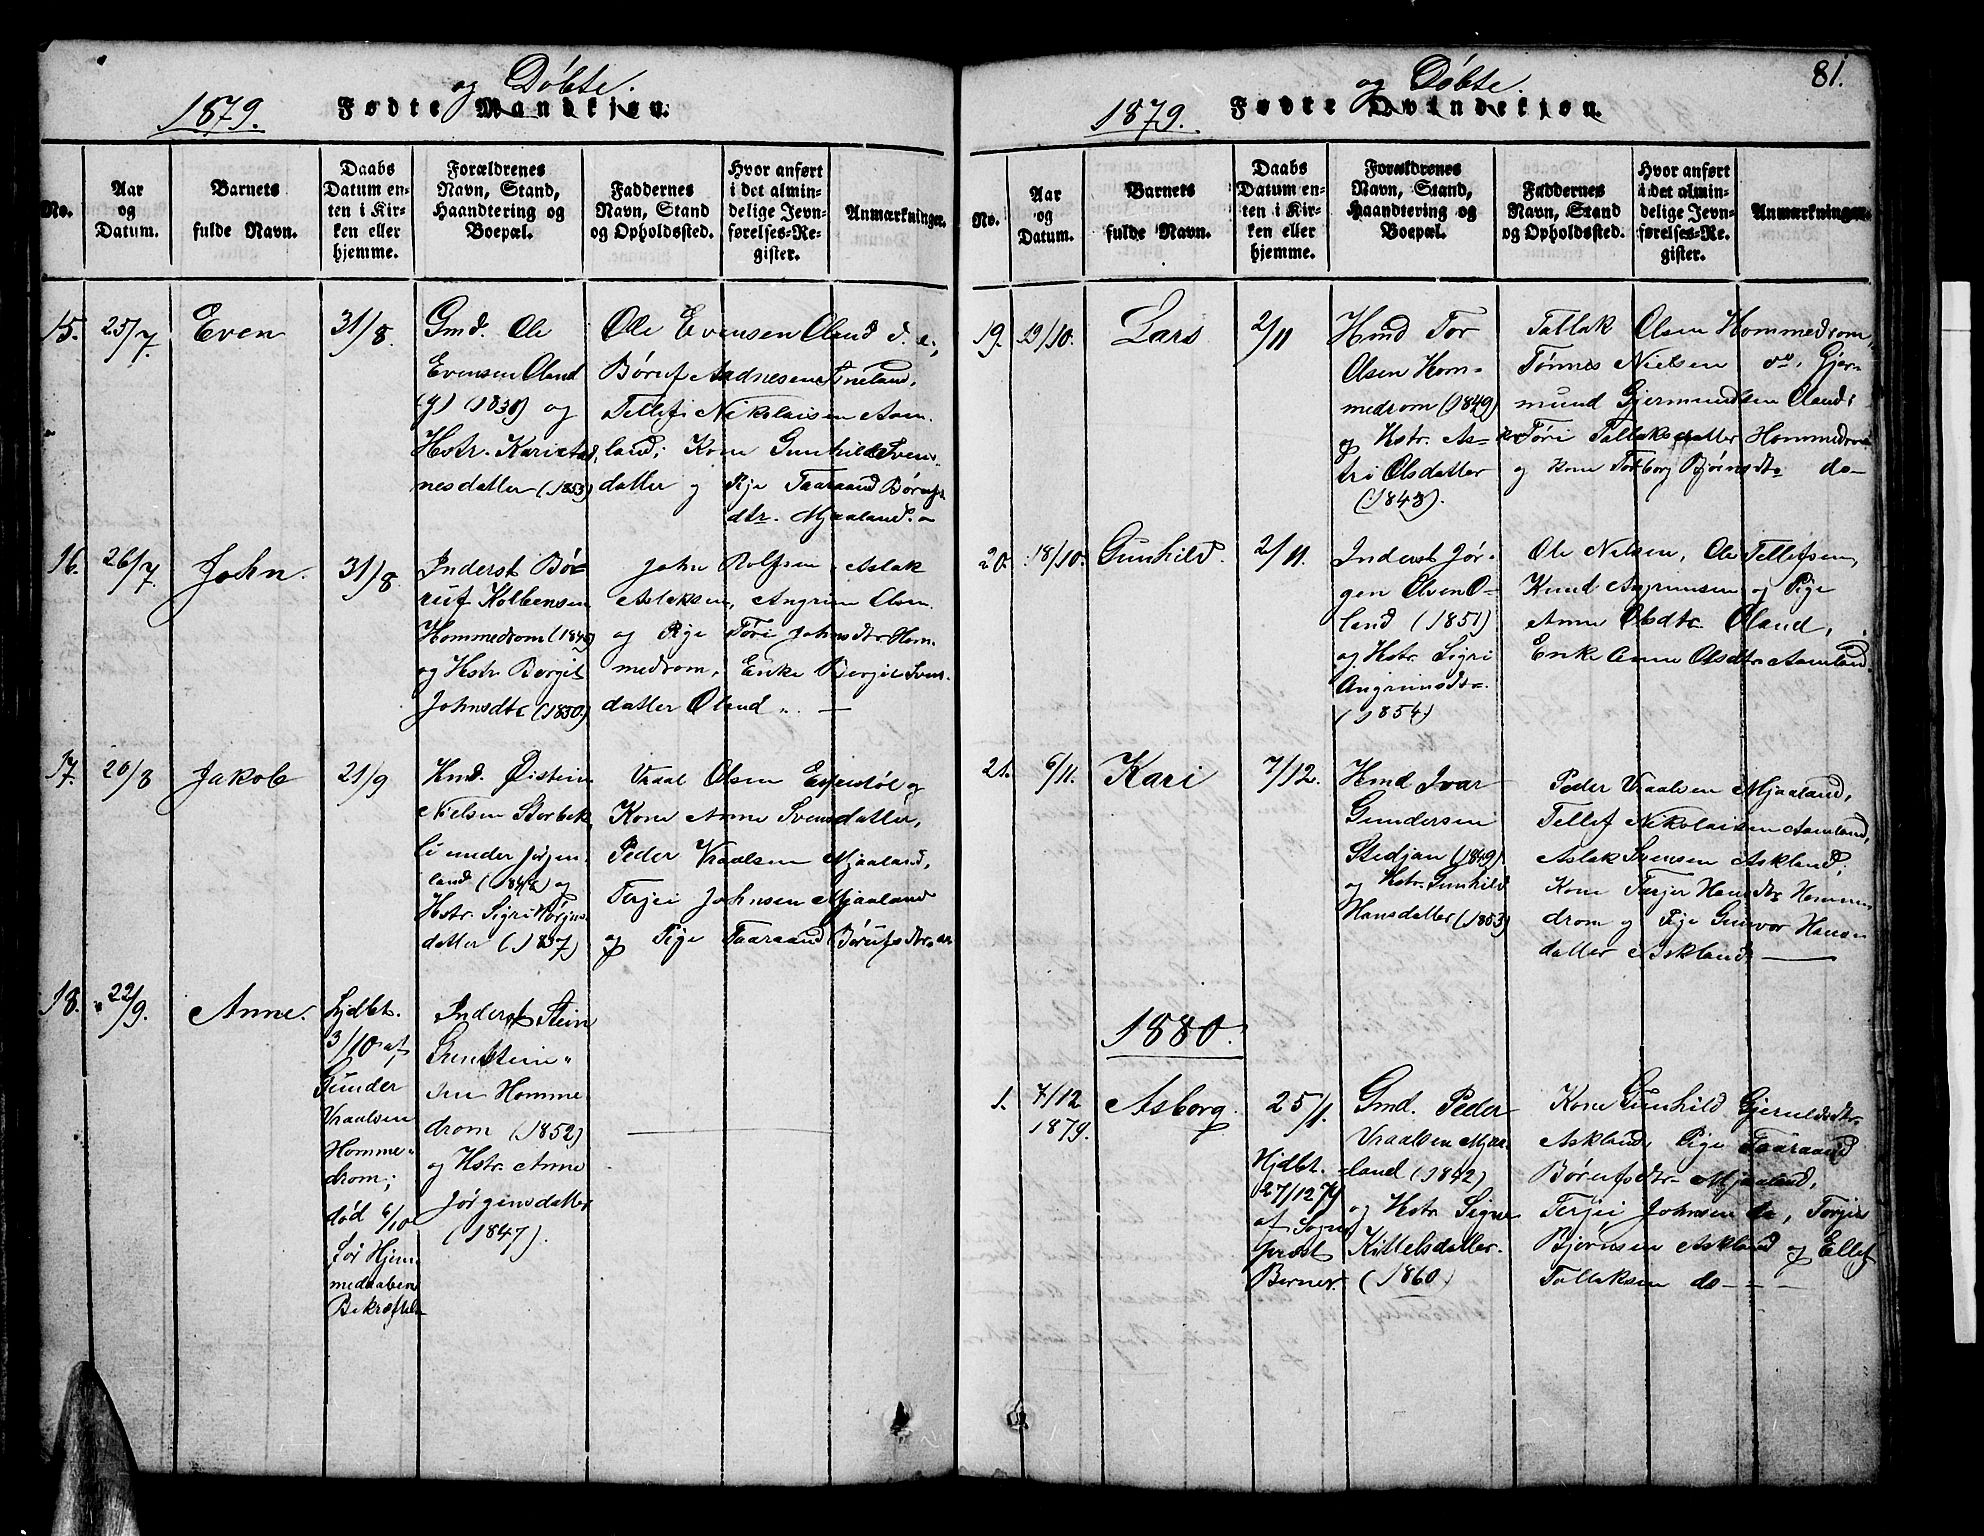 1879.
og Døbte.
Fødte Mandkjøn.
No.
Aar
og
Datum.
Barnets
fulde Navn.
Daabs
Datum en-
ten i Kir-
ken eller
hjemme.
Forældrenes
Navn, Stand,
Haandtering og
Boepæl.
Faddernes
Navn, Stand
og Opholdssted.
Hvor anført
i det almin-
delige Jevn-
førelses-Re-
gister.
Anmærkninger.
15.
25/7.
Even
31/8.
Gmd. Ole
Evensen Oland
og
Hstr. Kari
nesdatter (1853)
Ole Evensen Oland
Børuf Aadnesen
Tellef Nikolaisen Aam-
land; Kone Gunhild Sven-
datter og Pige Taaraand Børufs
dtr. Mjaaland.
16.
26/7.
John.
31/8.
Inderst Bø-
ruf Kolbensen
Hommedrom
og Hstr. Bergit
Johnsdtr (1850)
John Rolfsen, Aslak
Aslaksen, Angrim Olsen
og Pige Tøri Johnsdtr Hom-
medrom, Enke Bergit Svens-
datter Oland
17.
20/8
Jakob
21/9
Hmd. Øistein
Nielsen Storbek
li under Jørgen-
land og
Hstr. Sigri
datter (1857)
Vraal Olsen og
Kone Anne Svensdatter,
Peder Vraalsen Mjaaland,
Terjei Johnsen Mjaaland
og Pige Taaraand Børufsdtr
18.
22/9.
Anne.
Hjdbt.
3/10 af
Gunder
Vraalsen
Homme-
drom;
død 6/10
før Hjem-
medaabens
Bekræftelse
Inderst Stein
Gunstein-
sen Homme
drom (1852)
og Hstr. Anne
Jørgensdatter
(1847).
81.
1879.
og Døbte.
Fødte Qvindekjøn.
No.
Aar
og
Datum.
Barnets
fulde Navn.
Daabs
Datum en-
ten i Kir-
ken eller
hjemme.
Forældrenes
Navn, Stand,
Haandtering og
Boepæl.
Faddernes
Navn, Stand
og Opholdssted.
Hvor anført
i det almin-
delige Jevn-
førelses-Re-
gister.
Anmærkninger.
19.
19/10.
Lars
2/11
Hmd Tor
Olsen Hom-
medrom (1849)
og Hstr. As-
tri Olsdatter
(1843).
Tallak Olsen Hommedrom,
Tønnes Nielsen do, Gjer-
mund Gjermundsen Oland;
Tøri Tallaksdatter Hommedrom
og Kone Torborg Bjørnsdtr do
20.
18/10.
Gunhild.
2/11.
Inderst Jør-
gen Olsen O-
land (1851)
og Hstr. Sigri
Angrimsdtr.
(1854)
Ole Nielsen, Ole Tellefsen,
Knud Angrimsen og Pige
Anne Olsdtr. Oland,
Enke Anne Olsdtr Aamland
21.
6/11.
Kari
7/12.
Hmd Ivar
Gundersen
Stedjan (1849)
og Hstr. Gunhild
Hansdatter (1853)
Peder Vraalsen Mjaaland,
Tellef Nikolaisen Aamland,
Aslak Svensen Askland;
Kone Tarjer Hansdtr Homme
drom og Pige Gunvor Hans
datter Askland
1880.
1.
7/12
1879.
Asborg.
25/1.
Hjdbt.
27/12 79
af Sogne
præst
Berner.
Gmd. Peder
Vraalsen Mjaa-
land (1842)
og Hstr. Signe
Kittelsdatter.
(1860)
Kone Gunhild Gjeruldsdtr.
Askland, Pige Taaraand
Børufsdtr. Mjaaland,
Terjei Johnsen do, Torjus
Bjørnsen Askland og Ellef
Tallaksen do